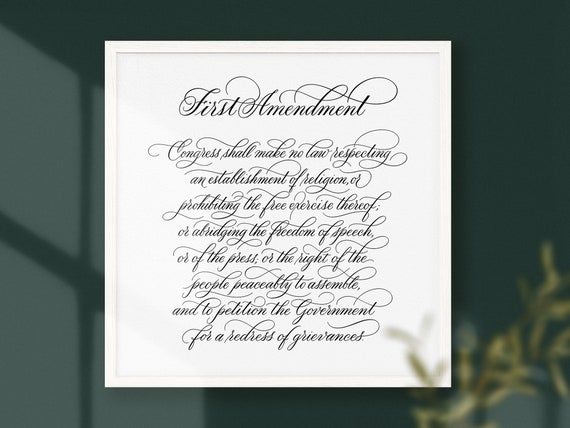 First Amendment
Congress shall make no law respecting
an establishment of religion, or
prohibiting the free exercise thereof;
or abridging the freedom of speech,
or of the press; or the right of the
people peaceably to assemble,
and to petition the Government
for a redress of grievances